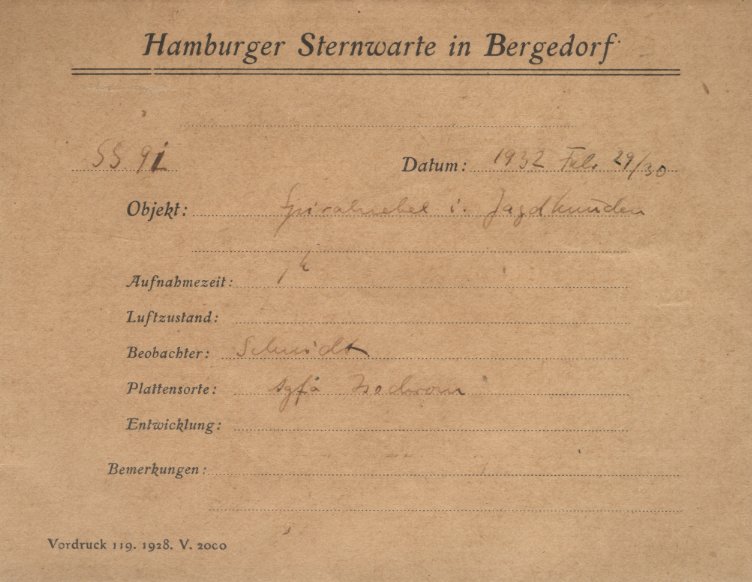 Hamburger Sternwarte in Bergedorf
SS 91 Datum: 1932 Feb. 29/30
Objekt: Spiralnebel i. Jagdhunden
Aufnahmezeit: 1h
Luftzustand:
Beobachter: Schmidt
Plattensorte: Agfa Isochrom
Entwicklung:
Bemerkungen:
Vordruck 119. 1928. V. 2000